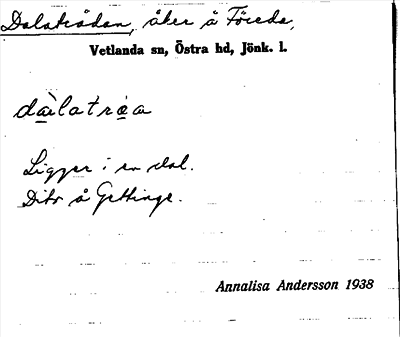 Dalatrådan, åker å Föreda,
Vetlanda sn, Östra hd, Jönk. l.
dàlatróa
Ligger i en dal.
Dito å Gettinge.
Annalisa Andersson 1938